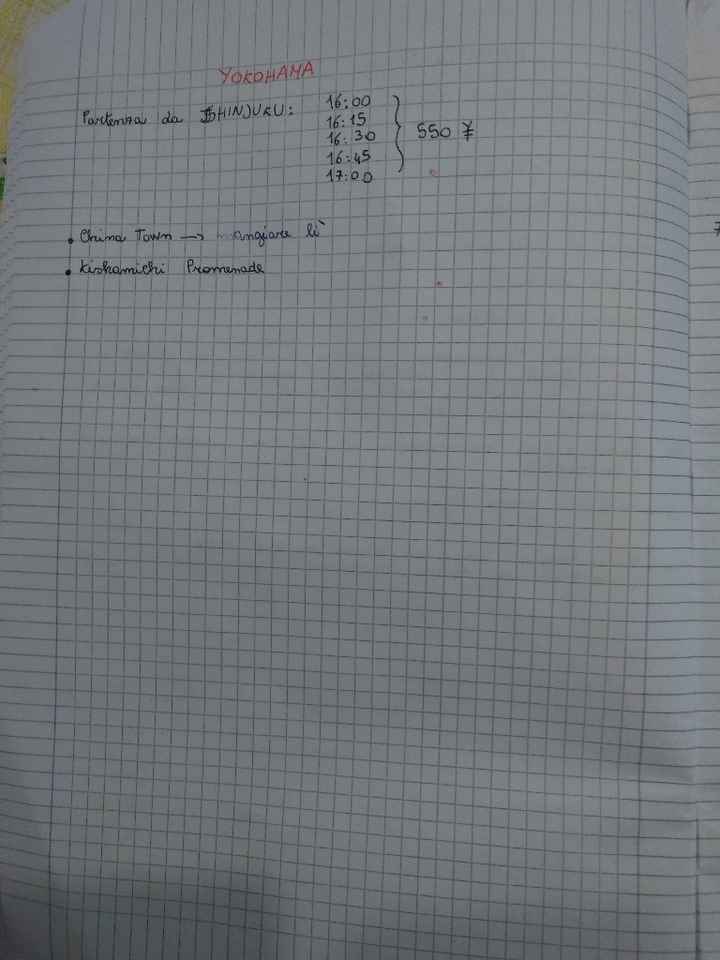 YOKOHAMA
Partenza da SHINJUKU: 16:00
16:15
16:30 550 ¥
16:45
17:00
• China Town → mangiare lì
• Kishamichi Promenade